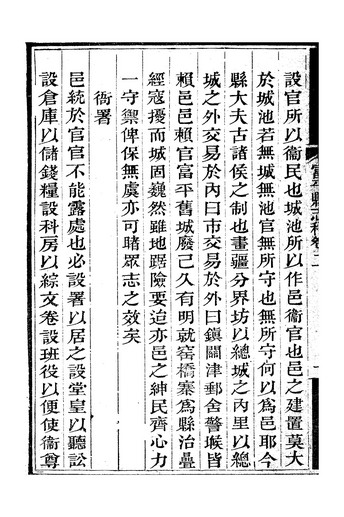 設官所以衞民也城池所以作邑衞官也邑之建置莫大
於城池若無城無池官無所守也無所守何以爲邑耶今
縣大夫古諸侯之制也畫疆分界坊以總城之內里以總
城之外交易於內曰市交易於外曰鎭關津郵舍警堠皆
賴邑邑賴官富平舊城廢已久有明就窑橋寨爲縣治疊
經寇擾而城固巍然雖地踞險要迫亦邑之紳民齊心力
一守禦俾保無虞亦可睹眾志之效矣
衙署
邑統於官官不能露處也必設署以居之設堂皇以聽訟
設倉庫以儲錢糧設科房以綜文卷設班役以便使衞尊
富平縣志稿卷二